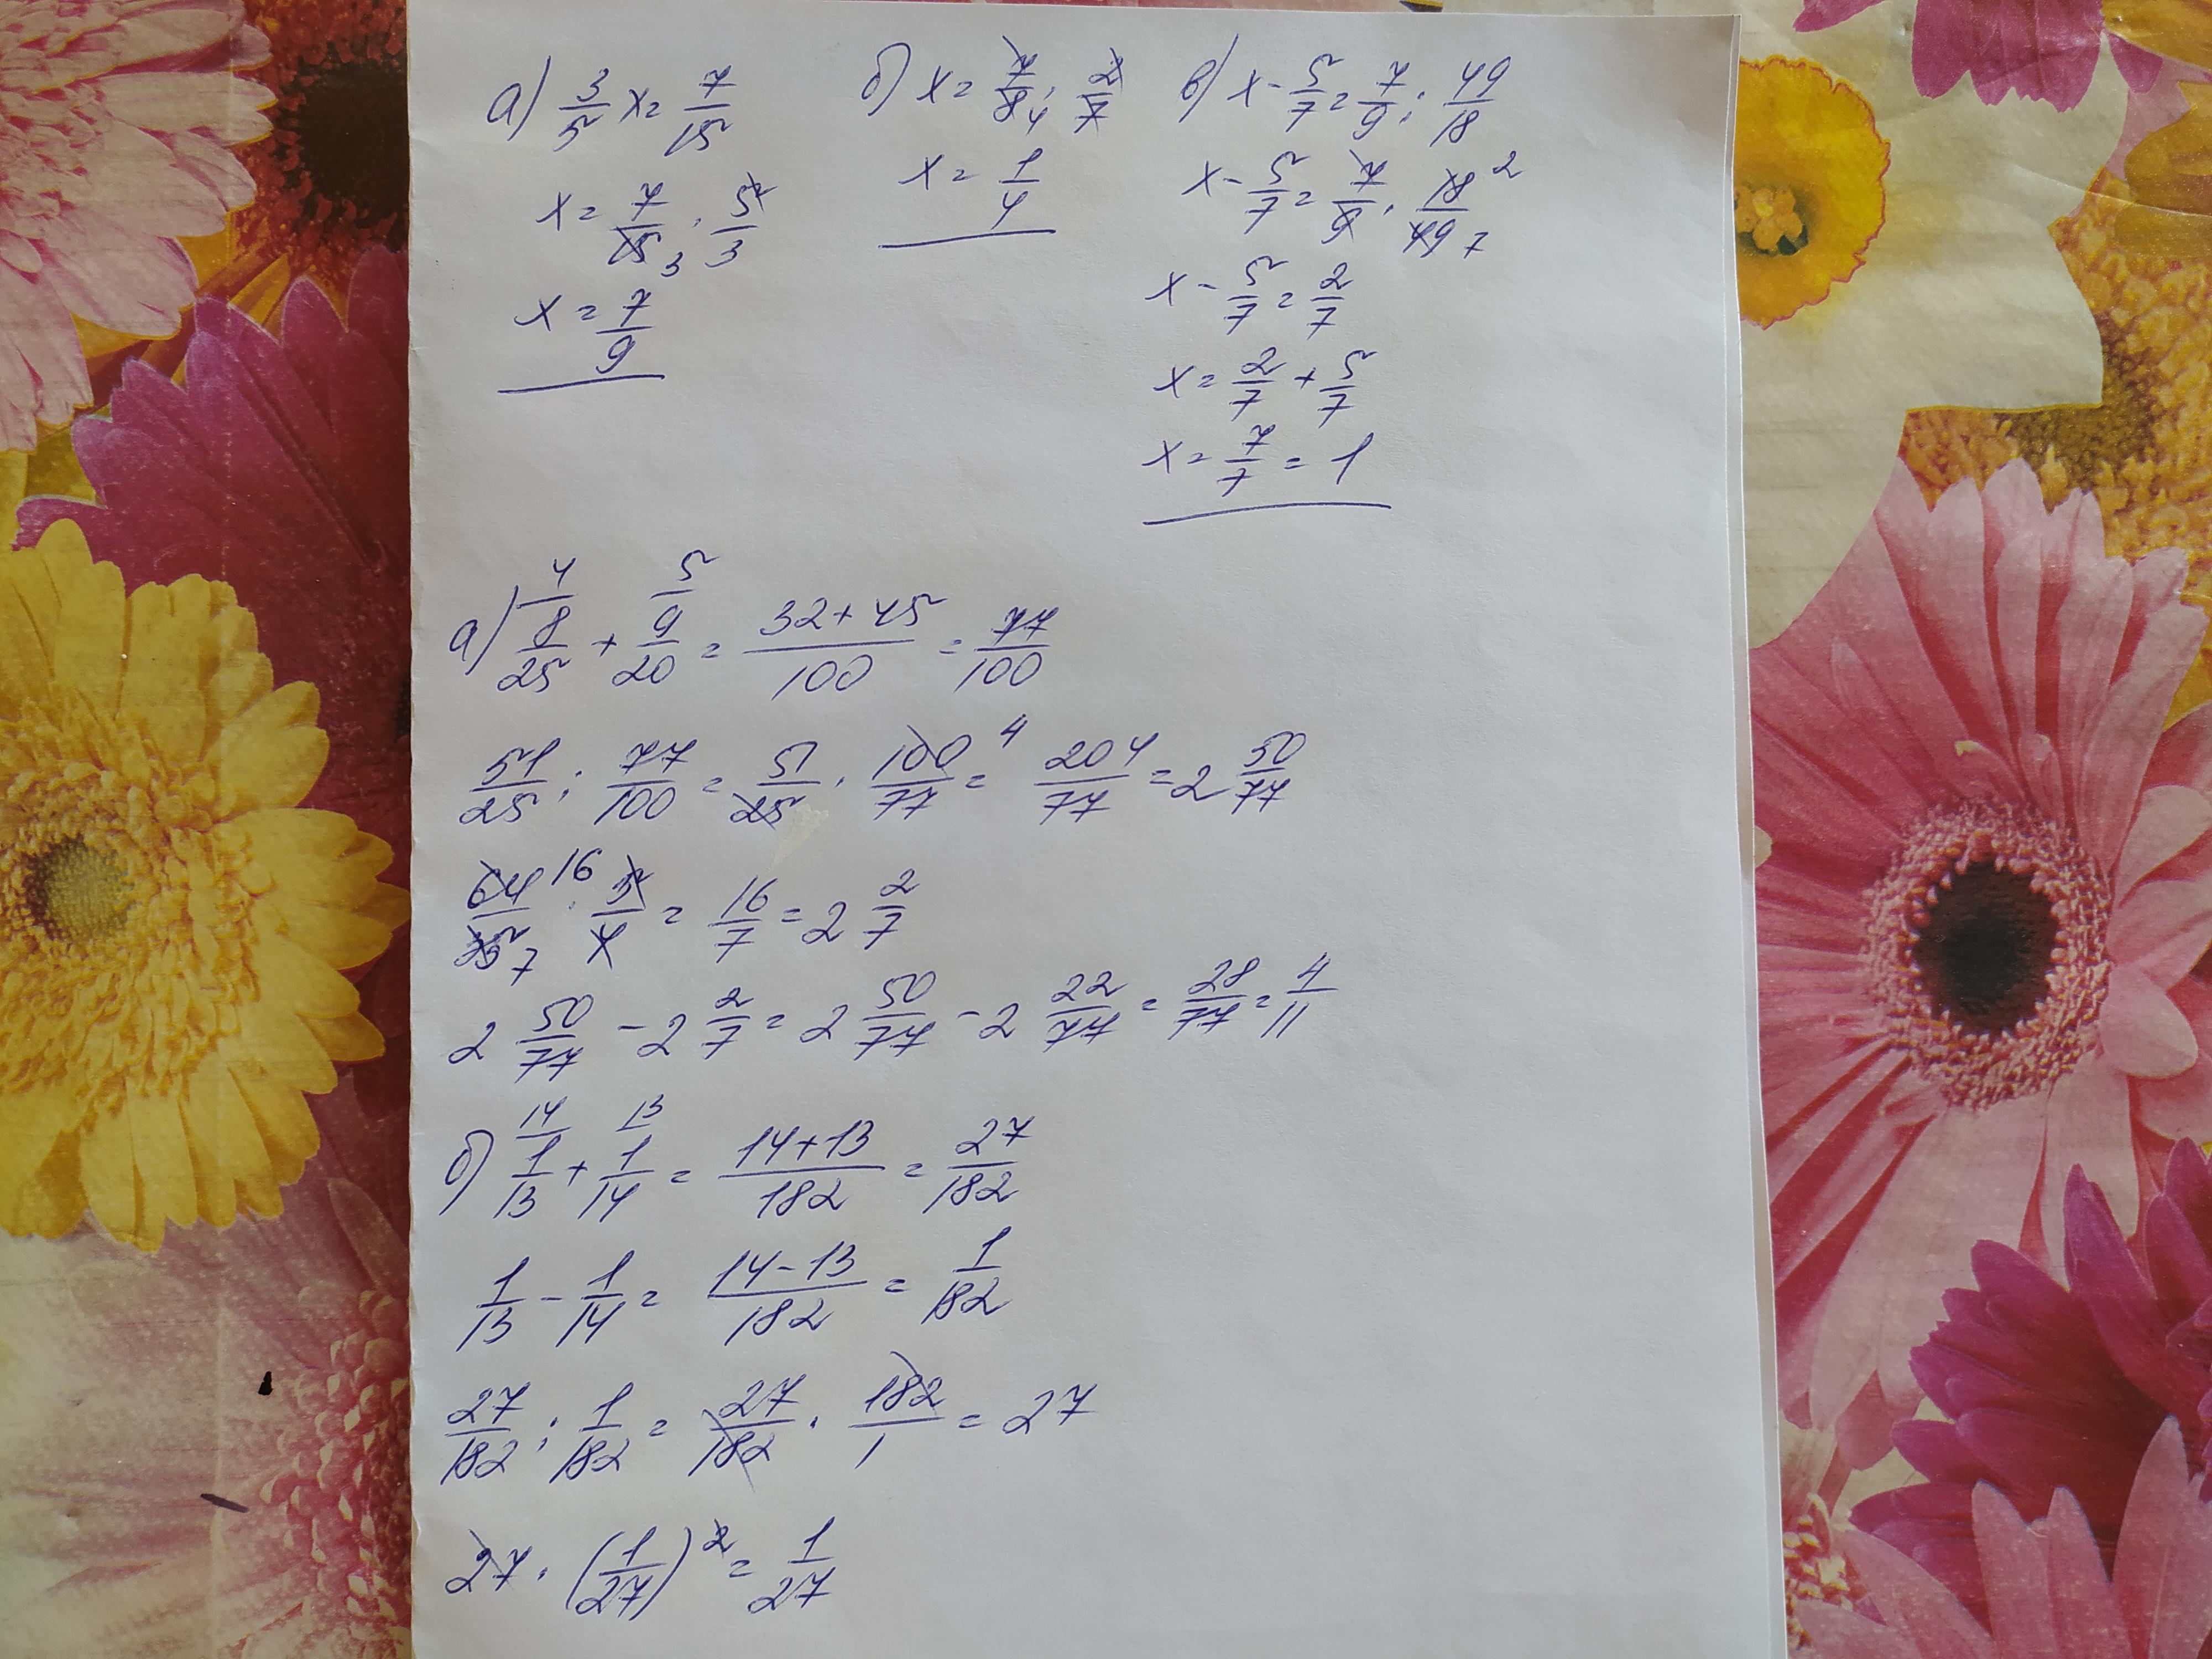 а) 3/5 x = 7/15
x = 7/15 3 · 5/3
x = 7/9
б) x = 7/8 4 · 2/7
x = 1/4
в) x - 5/7 = 7/9 : 49/18
x - 5/7 = 7/9 · 18/49 2 7
x - 5/7 = 2/7
x = 2/7 + 5/7
x = 7/7 = 1
4 5
а) 8/25 + 9/20 = (32+45)/100 = 77/100
51/25 : 77/100 = 51/25 · 100/77 4 = 204/77 = 2 50/77
64/35 16 7 · 5/4 = 16/7 = 2 2/7
2 50/77 - 2 2/7 = 2 50/77 - 2 22/77 = 28/77 = 4/11
14 13
б) 1/13 + 1/14 = (14+13)/182 = 27/182
1/13 - 1/14 = (14-13)/182 = 1/182
27/182 : 1/182 = 27/182 · 182/1 = 27
27 · (1/27)² = 1/27